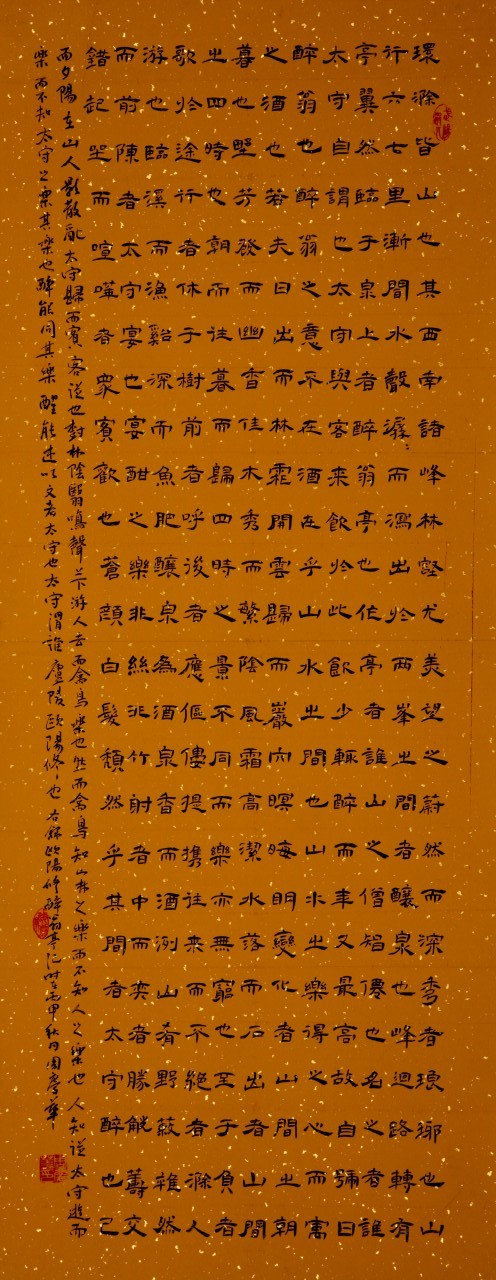 環滁皆山也其西南諸峰林壑尤美望之蔚然而深秀者琅琊也山
行六七里漸聞水聲潺〻而瀉出於兩峯之間者釀泉也峰迴路轉有
亭翼然臨于泉上者醉翁亭也作亭者誰山之僧智僊也名之者誰
太守自謂也太守與客来飲於此飲少輒醉而年又最高故自號曰
醉翁也醉翁之意不在酒在乎山水之間也山水之樂得之心而寓
之酒也若夫日出而林霏開雲歸而巖穴暝晦明變化者山間之朝
暮也野芳發而幽香佳木秀而繁陰風霜高潔水落而石出者山間
之四時也朝而往暮而歸四時之景不同而樂亦無窮也至于負者
歌於途行者休于樹前者呼後者應傴僂提攜往来而不絕者滁人
游也臨溪而漁谿深而魚肥釀泉為酒泉香而酒洌山肴野蔌雜然
而前陳者太守宴也宴酣之樂非絲非竹射者中而奕者勝觥籌交
錯起坐而喧嘩者眾賓歡也蒼顏白髮頹然乎其間者太守醉也已
而夕陽在山人影散亂太守歸而賓客從也樹林陰翳鳴聲上下游人去而禽鳥樂也然而禽鳥知山林之樂而不知人之樂也人知從太守遊而
樂而不知太守之樂其樂也醉能同其樂醒能述以文者太守也太守謂誰廬陵歐陽修〻也右錄歐陽修醉翁亭記時在丙申秋月周慶華